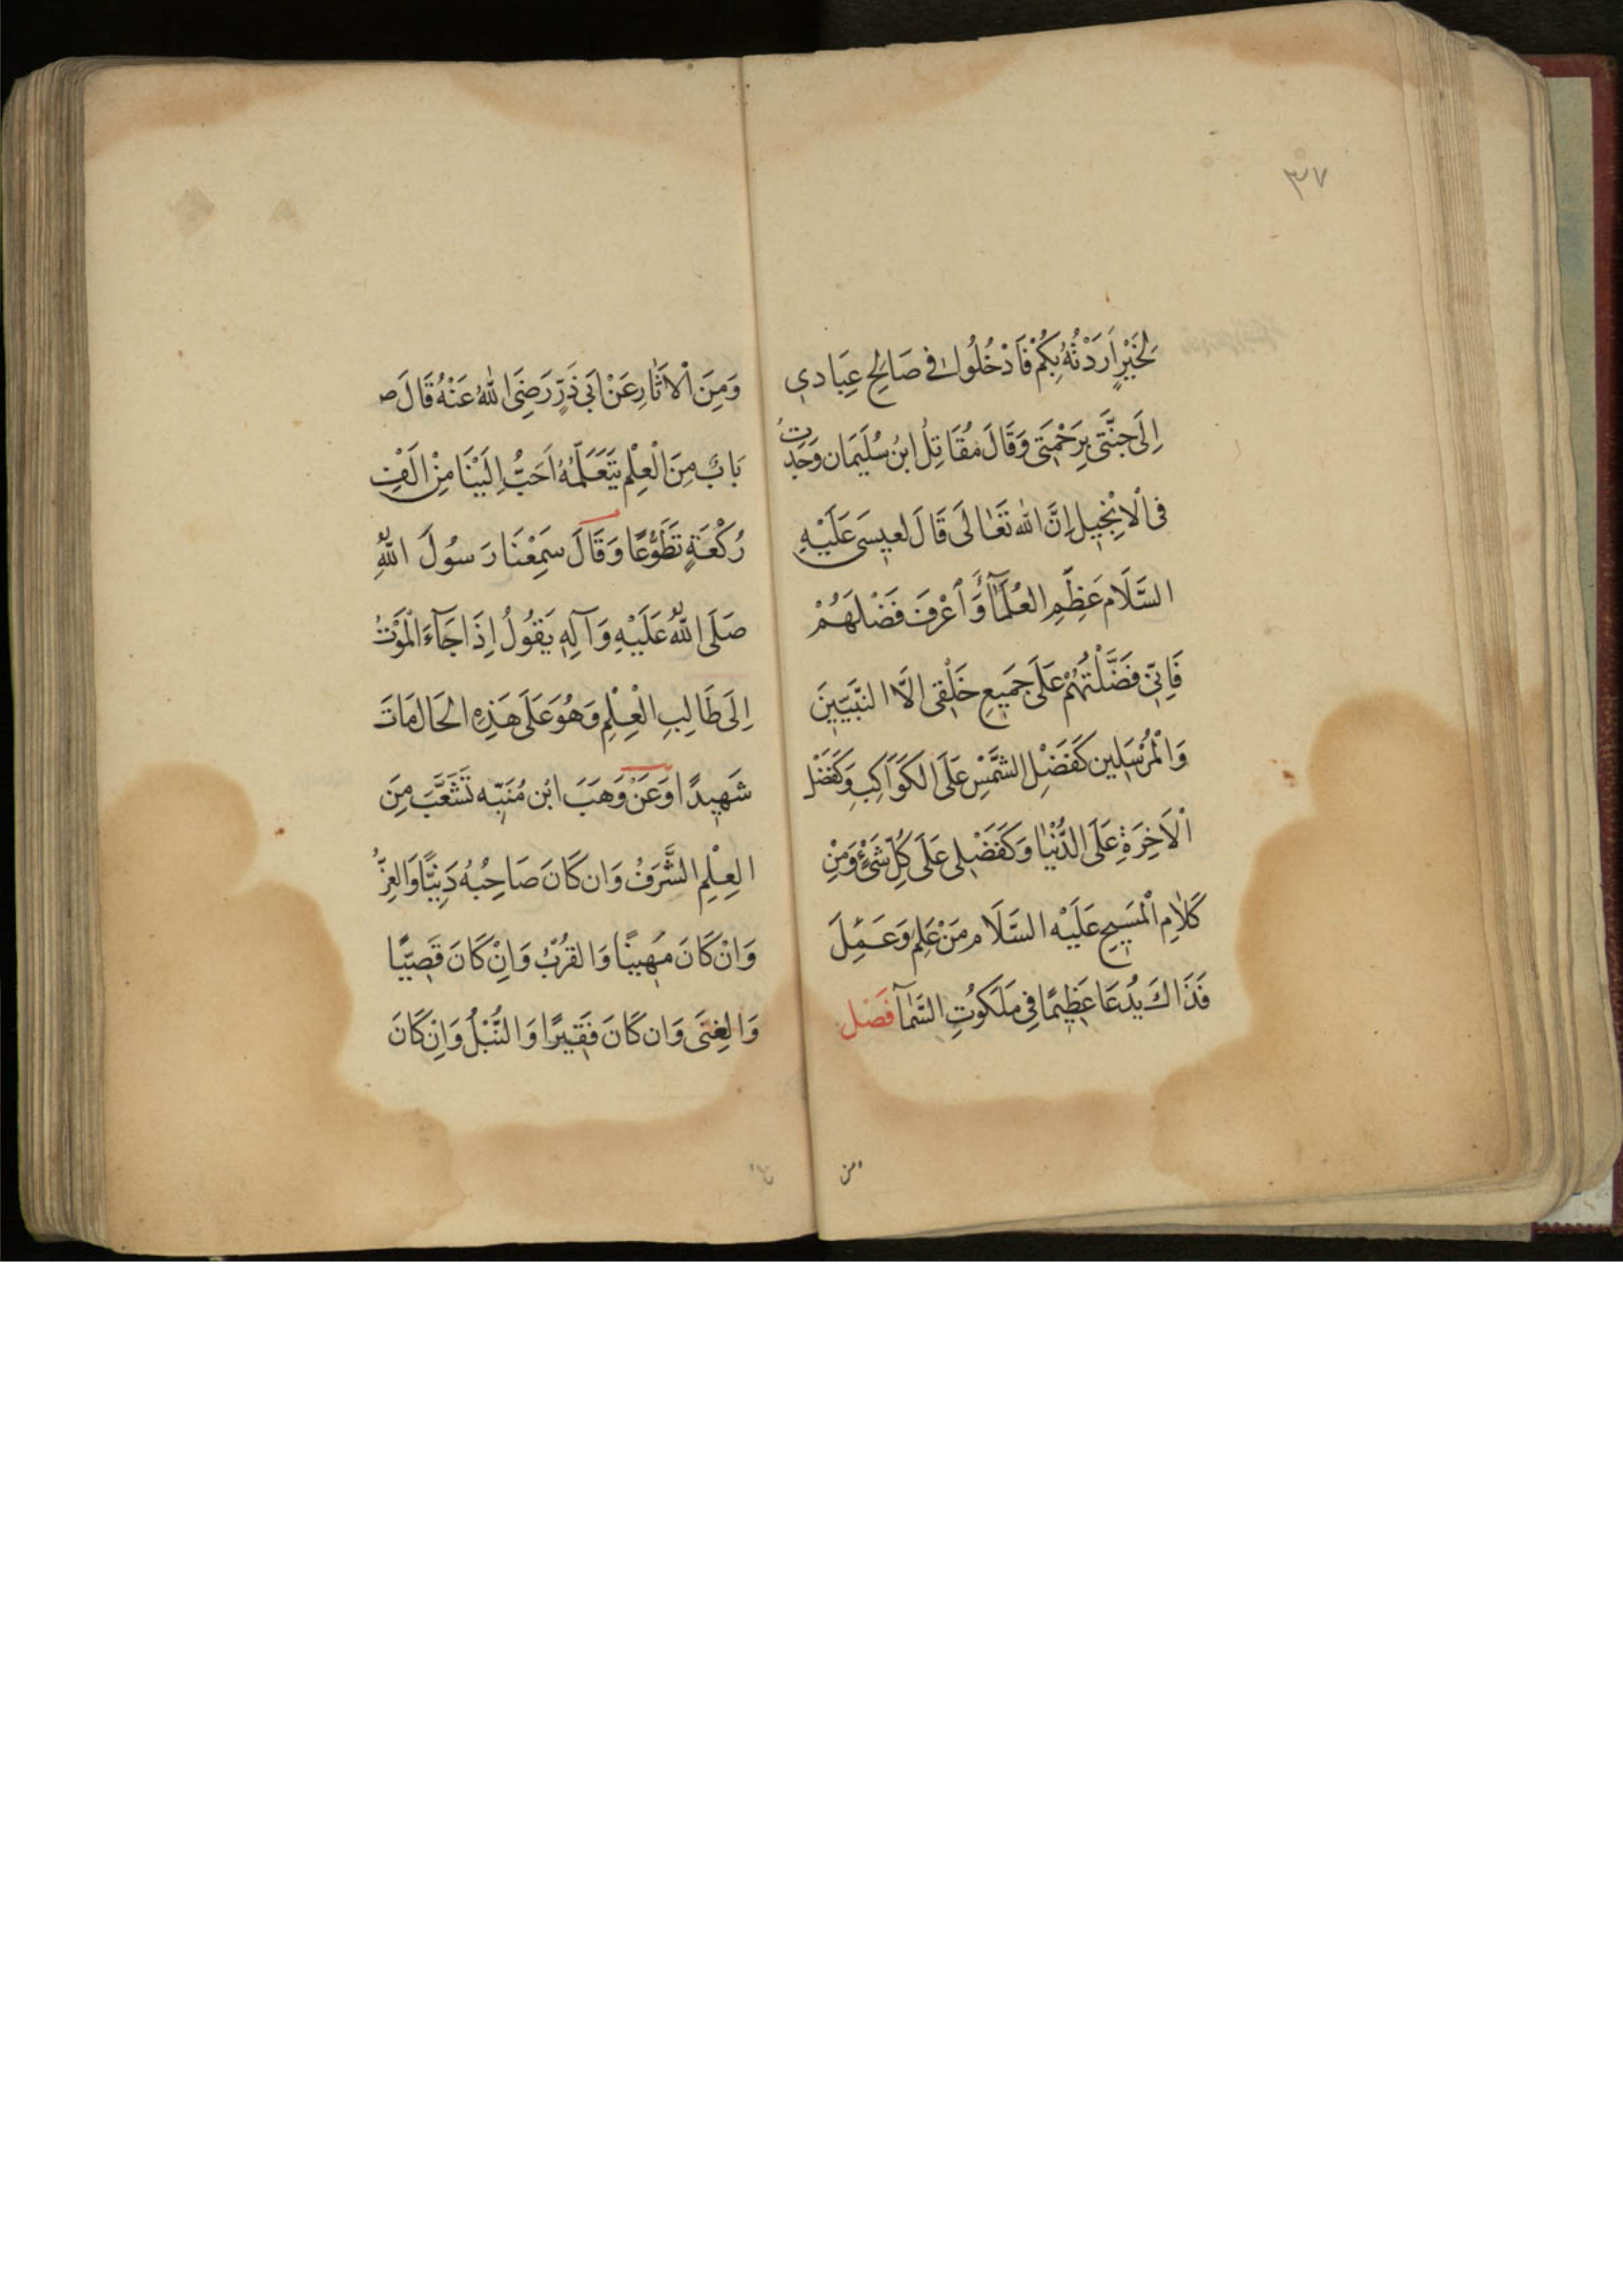 ٣٧
لِخَيْرٍ اَرَدْتُهُ بِكُمْ فَادْخُلُوا فى صَالِحِ عِبَادى
اِلَى جَنَّتى بِرَحْمَتى وَقَالَ مُقَاتِلُ ابنُ سُلَيْمَان وَجَدْتُ
فى الْاِنْجِيلِ اِنَّ الله تَعَالَى قَالَ لعِيسَى عَلَيْهِ
السَّلَام عَظِّمِ العُلَمَآءَ وَاَعْرِف فَضْلَهُمْ
فَاِنّى فَضَّلْتُهُمْ عَلَى جَمِيعِ خَلْقِى الَّا النَّبِيّينَ
وَالْمُرْسَلِين كَفَضْلِ الشَّمْسِ عَلَى الكَوَاكِبِ وَكَفَضْل
الْاَخِرَةِ عَلَى الدُّنْيَا وَكَفَضْلى عَلَى كُلِّ شَىْءٍ وَمِنْ
كَلَامِ الْمَسِيحِ عَلَيْه السَّلَام مَنْ عَلِمَ وَعَمِلَ
فَذَاكَ يُدعَا عَظِيمًا فِى مَلَكُوتِ السَّمَآ فَصْل
ومن
وَمِنَ الْاَثَارِ عَنْ اَبى ذَرٍّ رَضِىَ اللهُ عَنْهُ قَالَ ص
بَابٌ مِنَ الْعِلْم يَتَعَلَّمُهُ اَحَبُّ اِلَيْنَا مِنْ اَلْفِ
رُكْعَةٍ تَطَوُّعًا وَقَالَ سَمِعْنَا رَسُولَ اللهِ
صَلَى اللهُ عَلَيْهِ وَآلِهِ يَقُولُ اِذَا جَآءَ الْمَوْتُ
اِلَى طَالِبِ الْعِلْمِ وَهُوَ عَلَى هَذِهِ الحَال مَاتَ
شَهِيدًا وَعَنْ وَهَبَ ابْن مُنَبِّه تَشَعَّبَ مِنَ
العِلْمِ الشَّرَفُ وَان كَانَ صَاحِبُهُ دَنِيًّا وَالعِزُّ
وَانْ كَانَ مُهِينًا وَالقُرْبُ وَاِنْ كَانَ قَصِيًّا
وَالغِنَى وَان كَانَ فَقِيرًا وَالنُّبْلُ وَاِنْ كَانَ